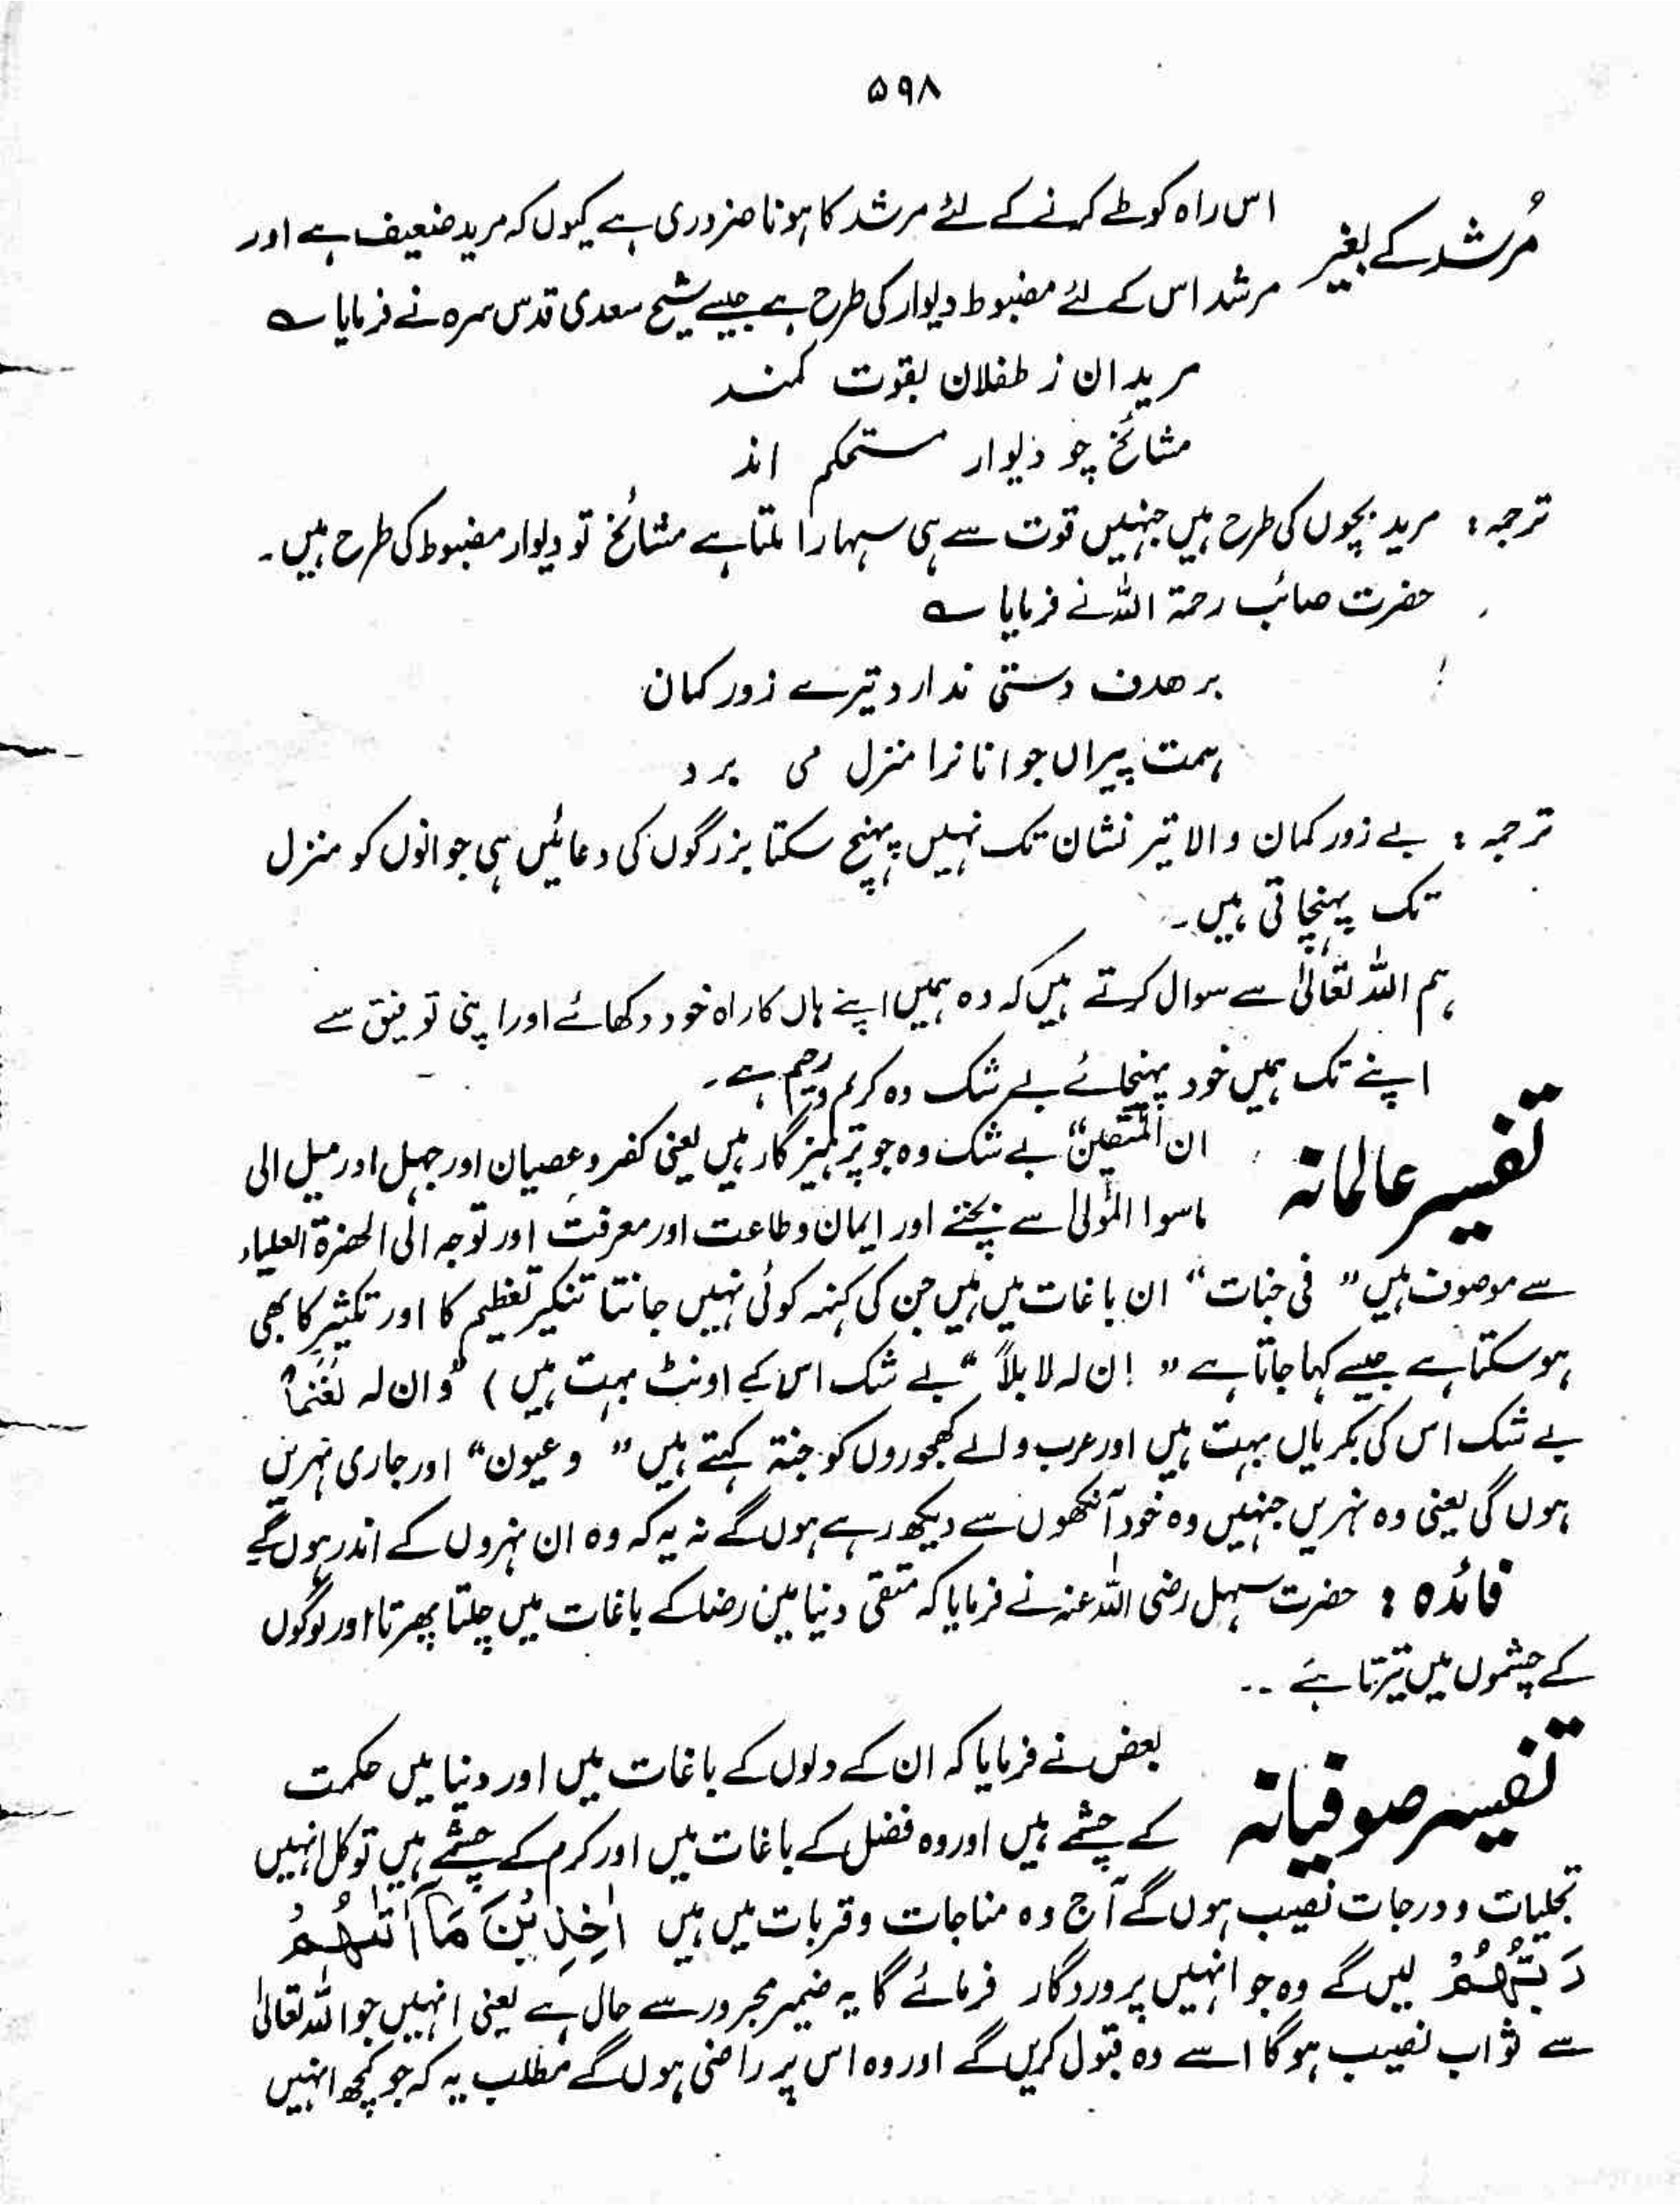 ۵۹۸
مُرشد کے بغیر
اس راہ کو طے کرنے کے لئے مرشد کا ہونا ضروری ہے کیوں کہ مرید ضعیف ہے اور
مرشد اس کے لئے مضبوط دیوار کی طرح ہے جیسے شیخ سعدی قدس سرہ نے فرمایا ؎
مریدان ز طفلان بقوت کمند
مشائخ چو دیوار مستحکم اند
ترجمہ : مرید بچوں کی طرح ہیں جنہیں قوت سے ہی سہارا ملتا ہے مشائخ تو دیوار مضبوط کی طرح ہیں۔
حضرت صائب رحمۃ اللہ نے فرمایا ؎
بر ھدف دستی ندارد تیرے زور کمان
ہمت پیراں جوانانرا منزل می برد
ترجمہ : بے زور کمان والا تیر نشان تک نہیں پہنچ سکتا بزرگوں کی دعائیں ہی جوانوں کو منزل
تک پہنچاتی ہیں۔
ہم اللہ تعالیٰ سے سوال کرتے ہیں کہ وہ ہمیں اپنے ہاں کا راہ خود دکھائے اور اپنی توفیق سے
اپنے تک ہمیں خود پہنچائے بے شک وہ کریم و رحیم ہے۔
تفسیر عالمانہ
ان المتقین“ بے شک وہ جو پرہیزگار ہیں یعنی کفر و عصیان اور جہل اور میل الی
ماسوا المولیٰ سے بچنے اور ایمان و طاعت اور معرفت اور توجہ الی الحضرۃ العلیاء
سے موصوف ہیں ” فی جنات “ ان باغات میں ہیں جن کی کنہہ کوئی نہیں جانتا تنکیر تعظیم کا اور تکثیر کا بھی
ہو سکتا ہے جیسے کہا جاتا ہے ” ان لہ لابلاً “ بے شک اس کے اونٹ بہت ہیں ) ” وان لہ لغنما“
بے شک اس کی بکریاں بہت ہیں اور عرب والے کھجوروں کو جنۃ کہتے ہیں ” وعیون“ اور جاری نہریں
ہوں گی یعنی وہ نہریں جنہیں وہ خود آنکھوں سے دیکھ رہے ہوں گے نہ یہ کہ وہ ان نہروں کے اندر ہوں گے
فائدہ : حضرت سہل رضی اللہ عنہ نے فرمایا کہ متقی دنیا میں رضا کے باغات میں چلتا پھرتا اور لوگوں
کے چشموں میں تیرتا ہے ۔۔
تفسیر صوفیانہ
بعض نے فرمایا کہ ان کے دلوں کے باغات میں اور دنیا میں حکمت
کے چشمے ہیں اور وہ فضل کے باغات میں اور کرم کے چشمے ہیں تو کل انہیں
تجلیات و درجات نصیب ہوں گے آج وہ مناجات و قربات میں ہیں اٰخِذِیْنَ مَآ اٰتٰھُمْ
رَبُّھُمْ لیں گے وہ جو انہیں پروردگار فرمائے گا یہ ضمیر مجرور سے حال ہے یعنی انہیں جو اللہ تعالیٰ
سے ثواب نصیب ہوگا اسے وہ قبول کریں گے اور وہ اس پر راضی ہوں گے مطلب یہ کہ جو کچھ انہیں